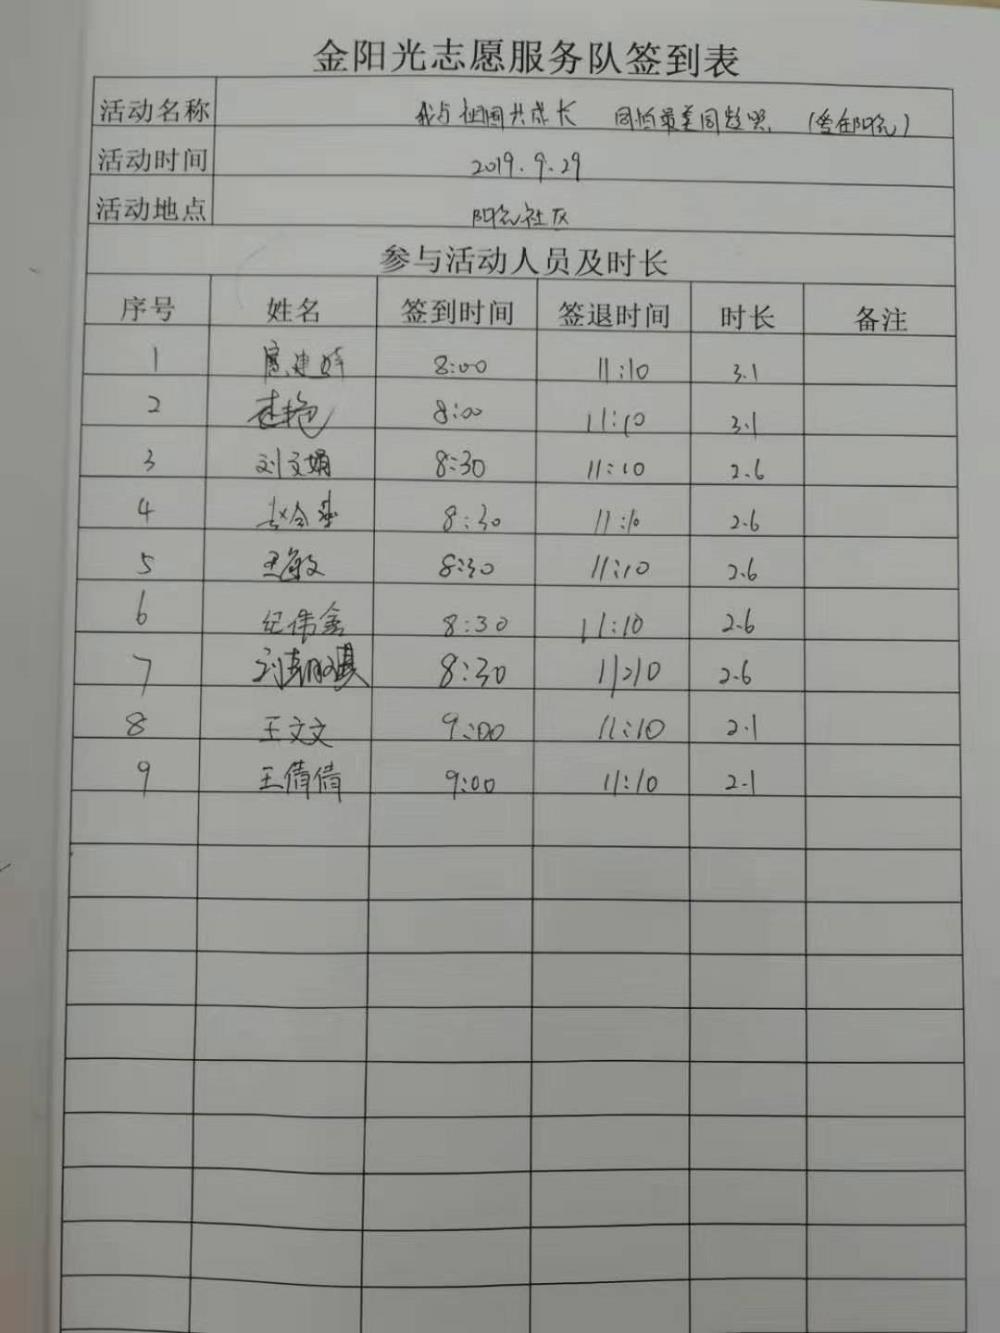 金阳光志愿服务队签到表
活动名称 我与祖国共成长
活动时间 2019.9.29
活动地点 阳光社区
参与活动人员及时长
序号 姓名 签到时间 签退时间 时长 备注
1 8:00 11:10 3.1
2 8:00 11:10 3.1
3 刘文娟 8:30 11:10 2.6
4 8:30 11:10 2.6
5 王敏 8:30 11:10 2.6
6 纪伟鑫 8:30 11:10 2.6
7 8:30 11:10 2.6
8 王文文 9:00 11:10 2.1
9 王倩倩 9:00 11:10 2.1